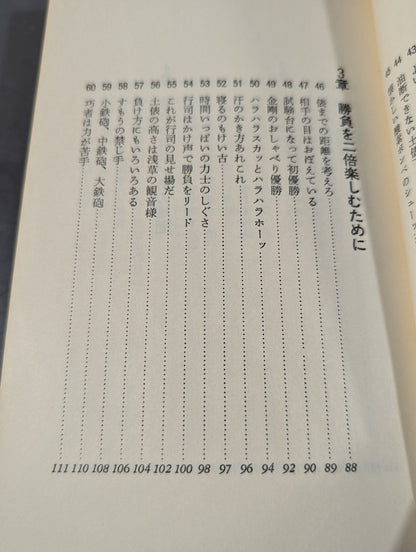 43
44
45
3章 勝負を二倍楽しむために
46 俵までの距離を考えろ 88
47 相手の目はおぼえている 89
48 試験台になって初優勝 90
49 金剛のおしゃべり優勝 92
50 ハラハラスカッとハラハラホーッ 94
51 汗のかき方あれこれ 96
52 寝るのもけい古 97
53 時間いっぱいの力士のしぐさ 98
54 行司はかけ声で勝負をリード 100
55 これが行司の見せ場だ 102
56 土俵の高さは浅草の観音様 102
57 負け方にもいろいろある 104
58 すもうの禁じ手 106
59 小鉄砲、中鉄砲、大鉄砲 108
60 巧者は力が苦手 110
111